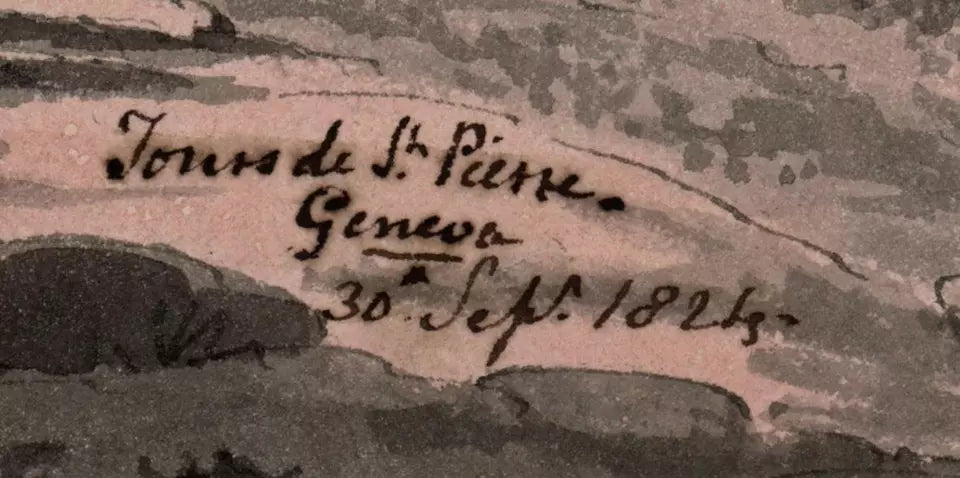 Tours de St. Pierre.
Geneva
30. Sept. 1824.